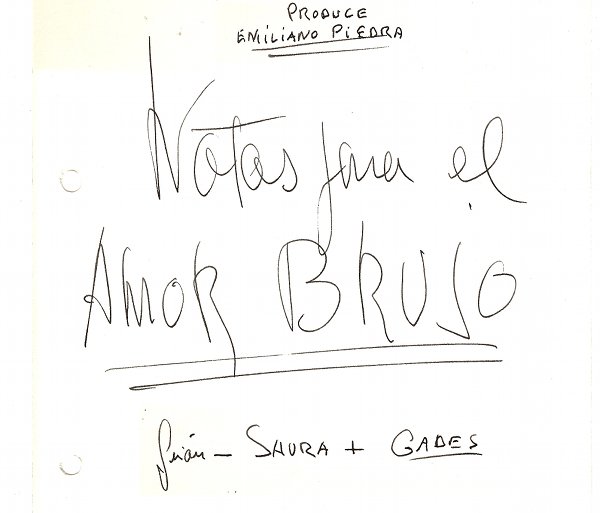 PRODUCE
EMILIANO PIEDRA
Notas para el
AMOR BRUJO
guión - SAURA + GADES